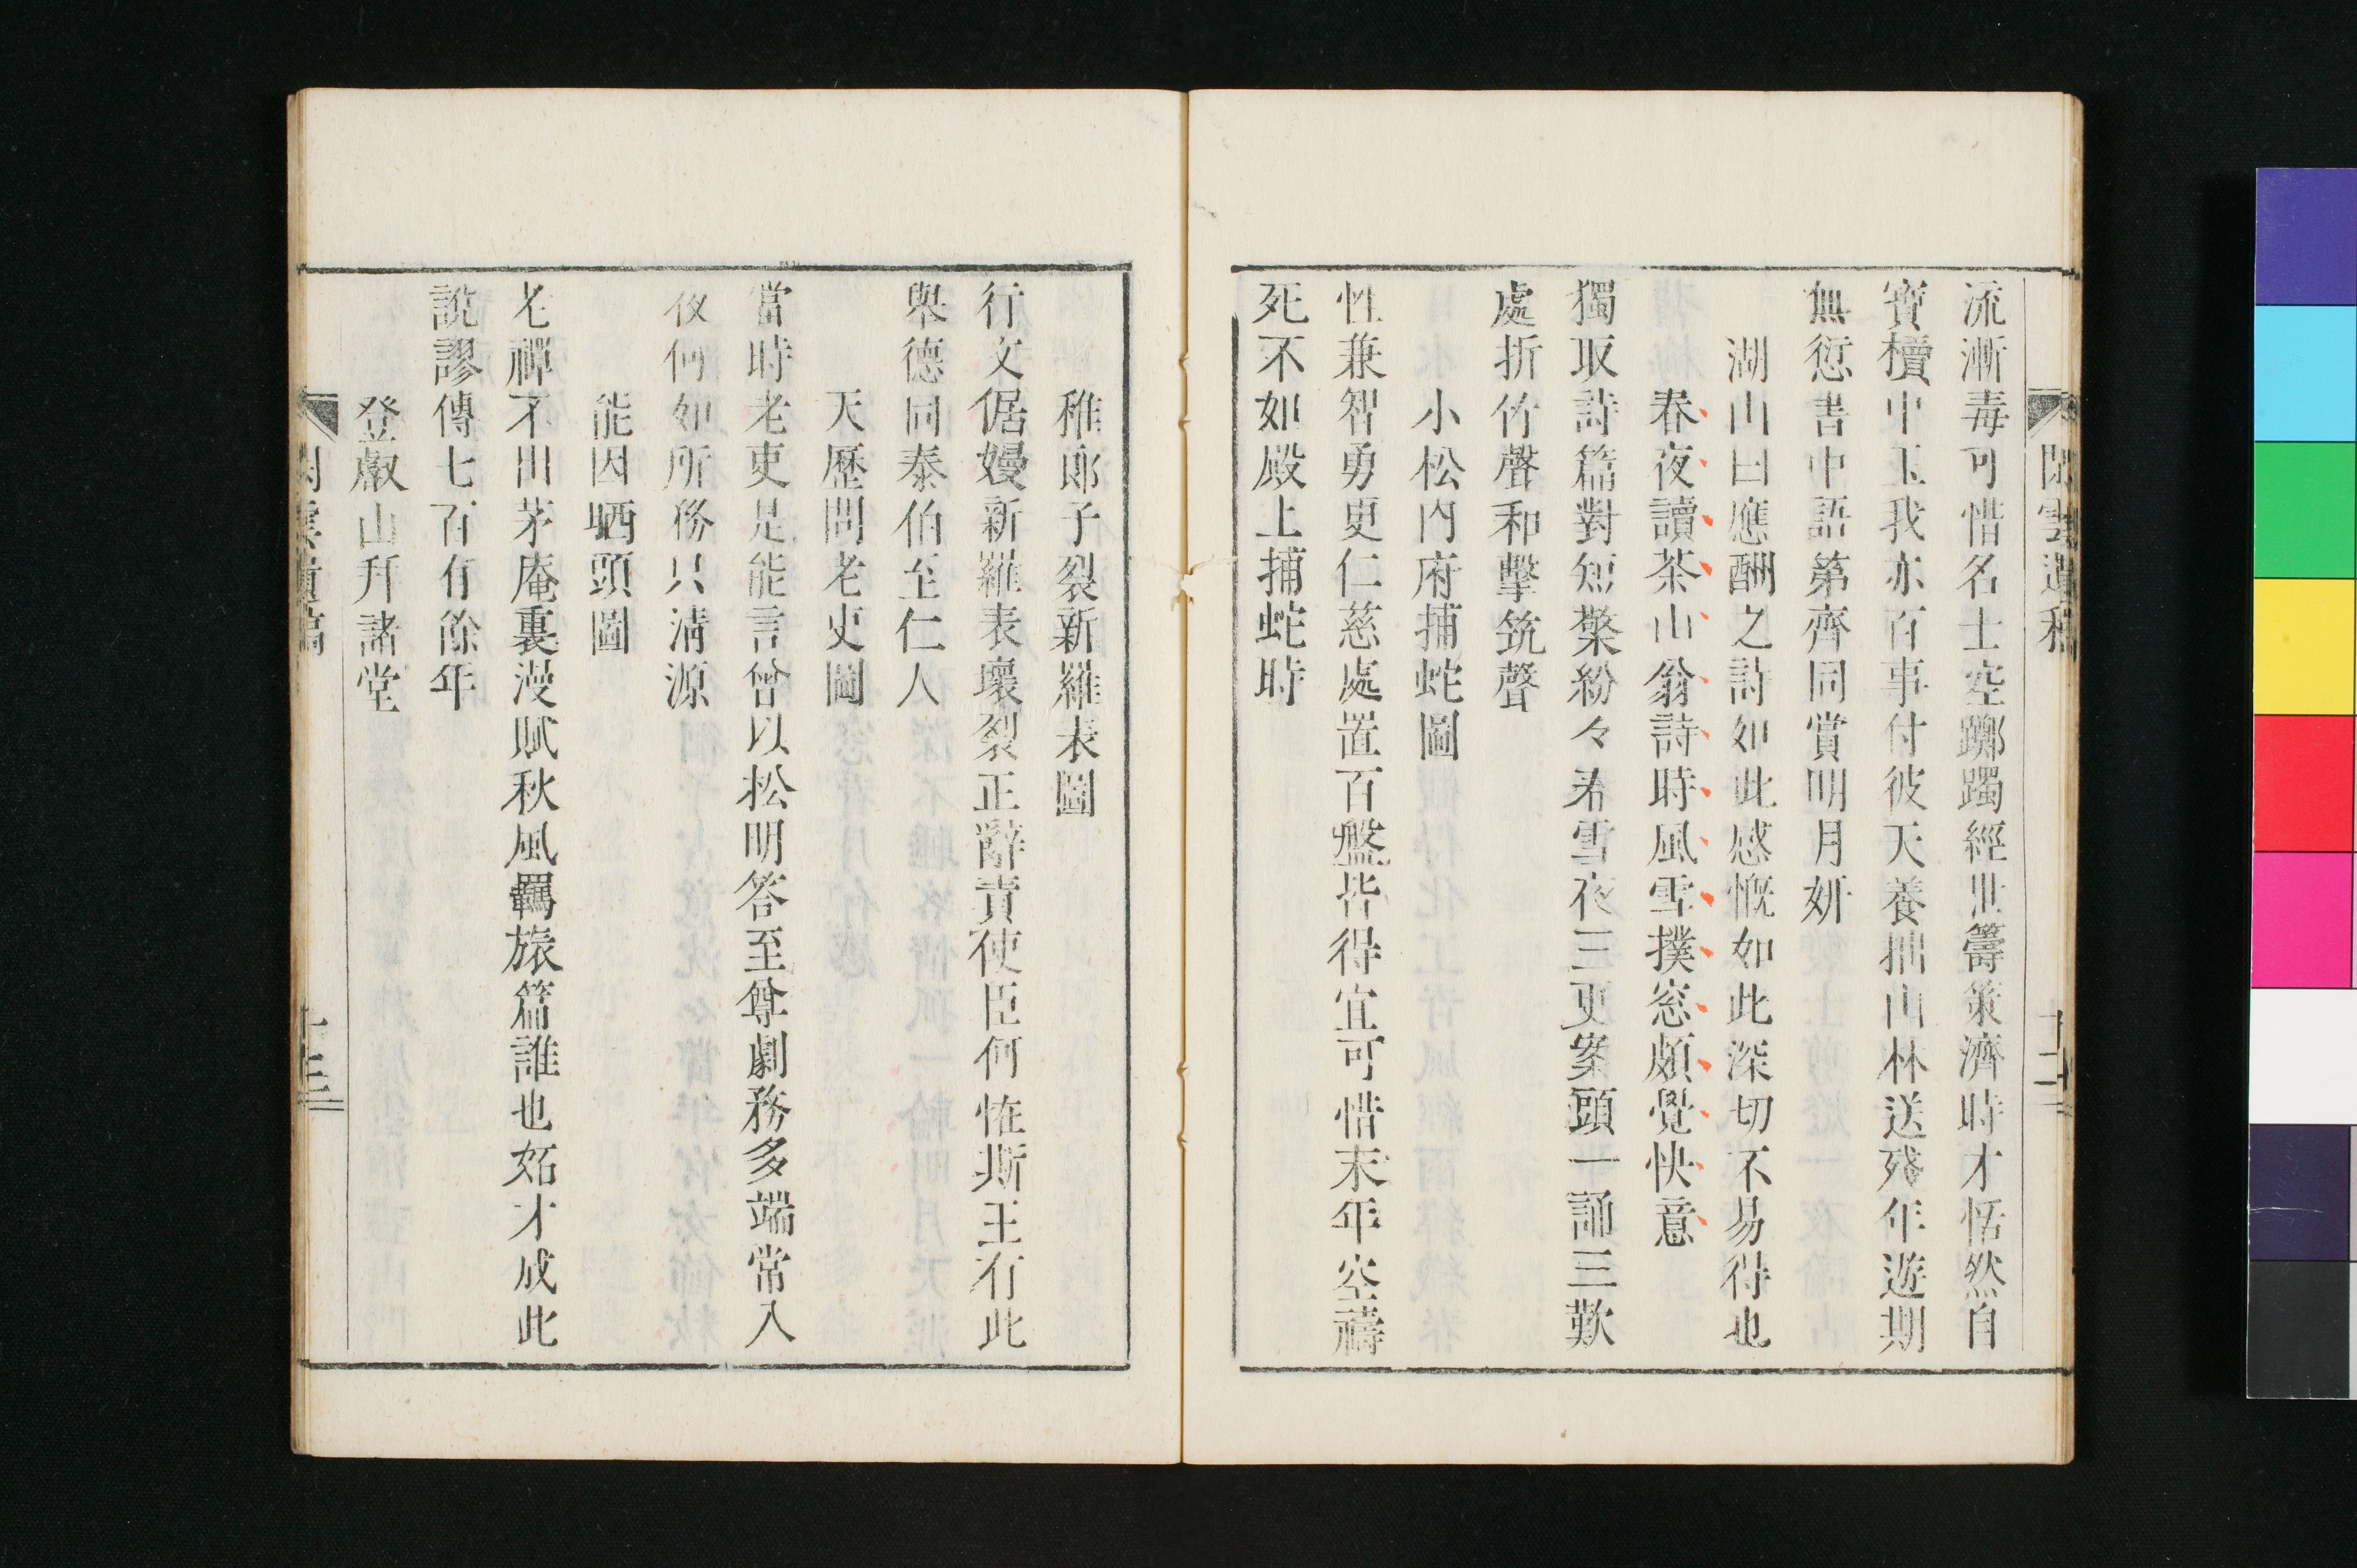 流漸毒可惜名士空躑躅經世籌策濟時才恬然自
寶櫝中玉我亦百事付彼天養拙山林送殘年遊期
無愆書中語第齊同賞明月妍
湖山曰應酬之詩如此感慨如此深切不易得也
春夜讀茶山翁詩時風雪撲窓頗覺快意
獨取詩篇對短檠紛々春雪夜三更案頭一誦三歎
處折竹聲和擊筑聲
小松内府捕蛇圖
性兼智勇更仁慈處置百盤皆得宜可惜末年空禱
死不如殿上捕蛇時
稚郎子裂新羅表圖
行文倨嫚新羅表壞裂正辭責使臣何恠斯王有此
舉德同泰伯至仁人
天歷問老吏圖
當時老吏是能言曾以松明答至尊劇務多端常入
夜何如所務只淸源
能因晒頭圖
老禪不出茅庵裏漫賦秋風羈旅篇誰也妬才成此
說謬傳七百有餘年
登叡山拜諸堂